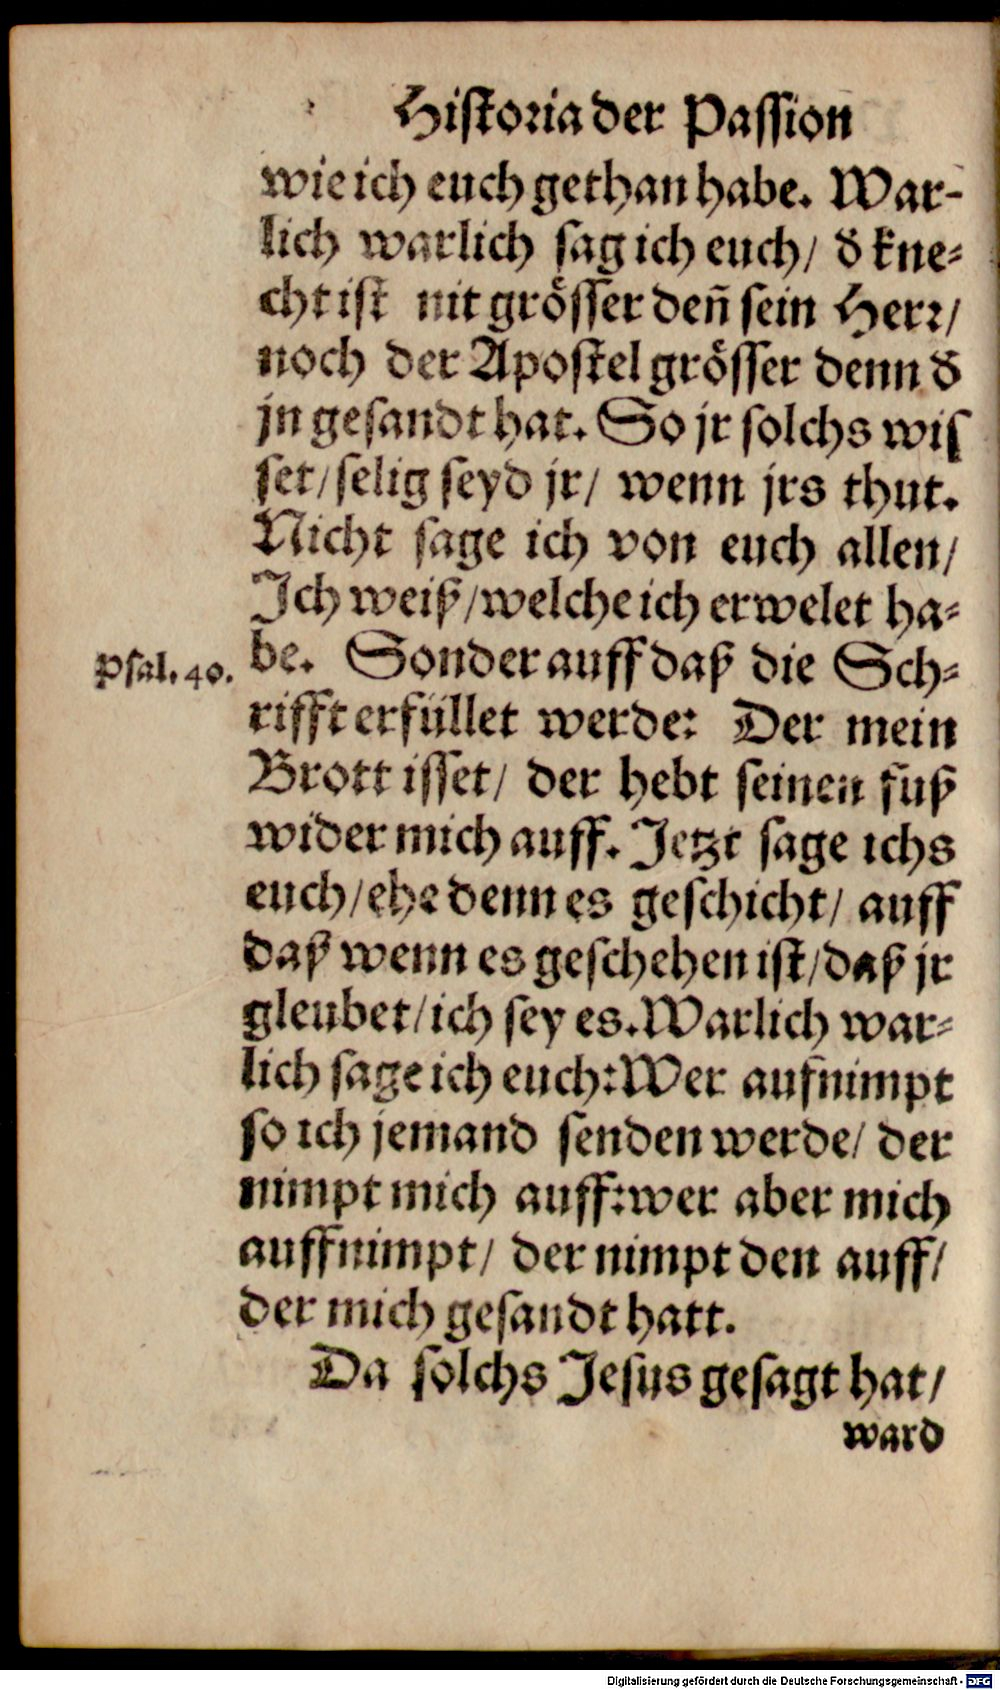 Historia der Passion
wie ich euch gethan habe. War-
lich warlich sag ich euch/ d̕ kne-
cht ist nit grösser den̄ sein Herr/
noch der Apostel grösser denn d̕
jn gesandt hat. So jr solchs wis
set/ selig seyd jr/ wenn jrs thut.
Nicht sage ich von euch allen/
Ich weiß/ welche ich erwelet ha-
Psal. 40. be. Sonder auff daß die Sch-
rifft erfüllet werde: Der mein
Brott isset/ der hebt seinen fuß
wider mich auff. Jetzt sage ichs
euch/ ehe denn es geschicht/ auff
daß wenn es geschehen ist/ daß jr
gleubet/ ich sey es. Warlich war-
lich sage ich euch: Wer aufnimpt
so ich jemand senden werde/ der
nimpt mich auff: wer aber mich
auffnimpt/ der nimpt den auff/
der mich gesandt hatt.
Da solchs Jesus gesagt hat/
ward
Digitalisierung gefördert durch die Deutsche Forschungsgemeinschaft - DFG